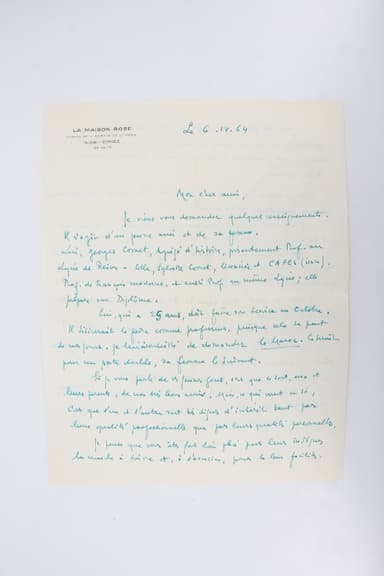 LA MAISON ROSE
NICE - CIMIEZ
Le 6 - IV - 64
Mon cher ami,
Je viens vous demander quelques renseignements.
Il s'agit d'un jeune ami et de sa femme.
Lui, Georges Comet, Agrégé d'histoire, présentement Prof. au
Lycée de Reims - Elle, Sylvette Comet, licenciée et CAPES
Prof. de français moderne, et aussi Prof. au même Lycée; elle
prépare son Diplôme.
Lui, qui a 25 ans, doit faire son Service en Octobre.
Il désirerait le faire comme professeur, puisque cela se peut
de nos jours. Je lui ai conseillé de demander le Maroc. Ce serait
pour un poste double, sa femme le suivant.
Si je vous parle de ces jeunes gens, c'est que ce sont, eux et
leurs parents, de nos très bons amis. Mais, ce qui vaut mieux,
c'est que l'un et l'autre sont très dignes d'intérêt tant par
leurs qualités professionnelles que par leurs qualités personnelles.
Je pense que vous êtes fort bien placé pour leur indiquer
la marche à suivre et, à l'occasion, pour la leur faciliter.